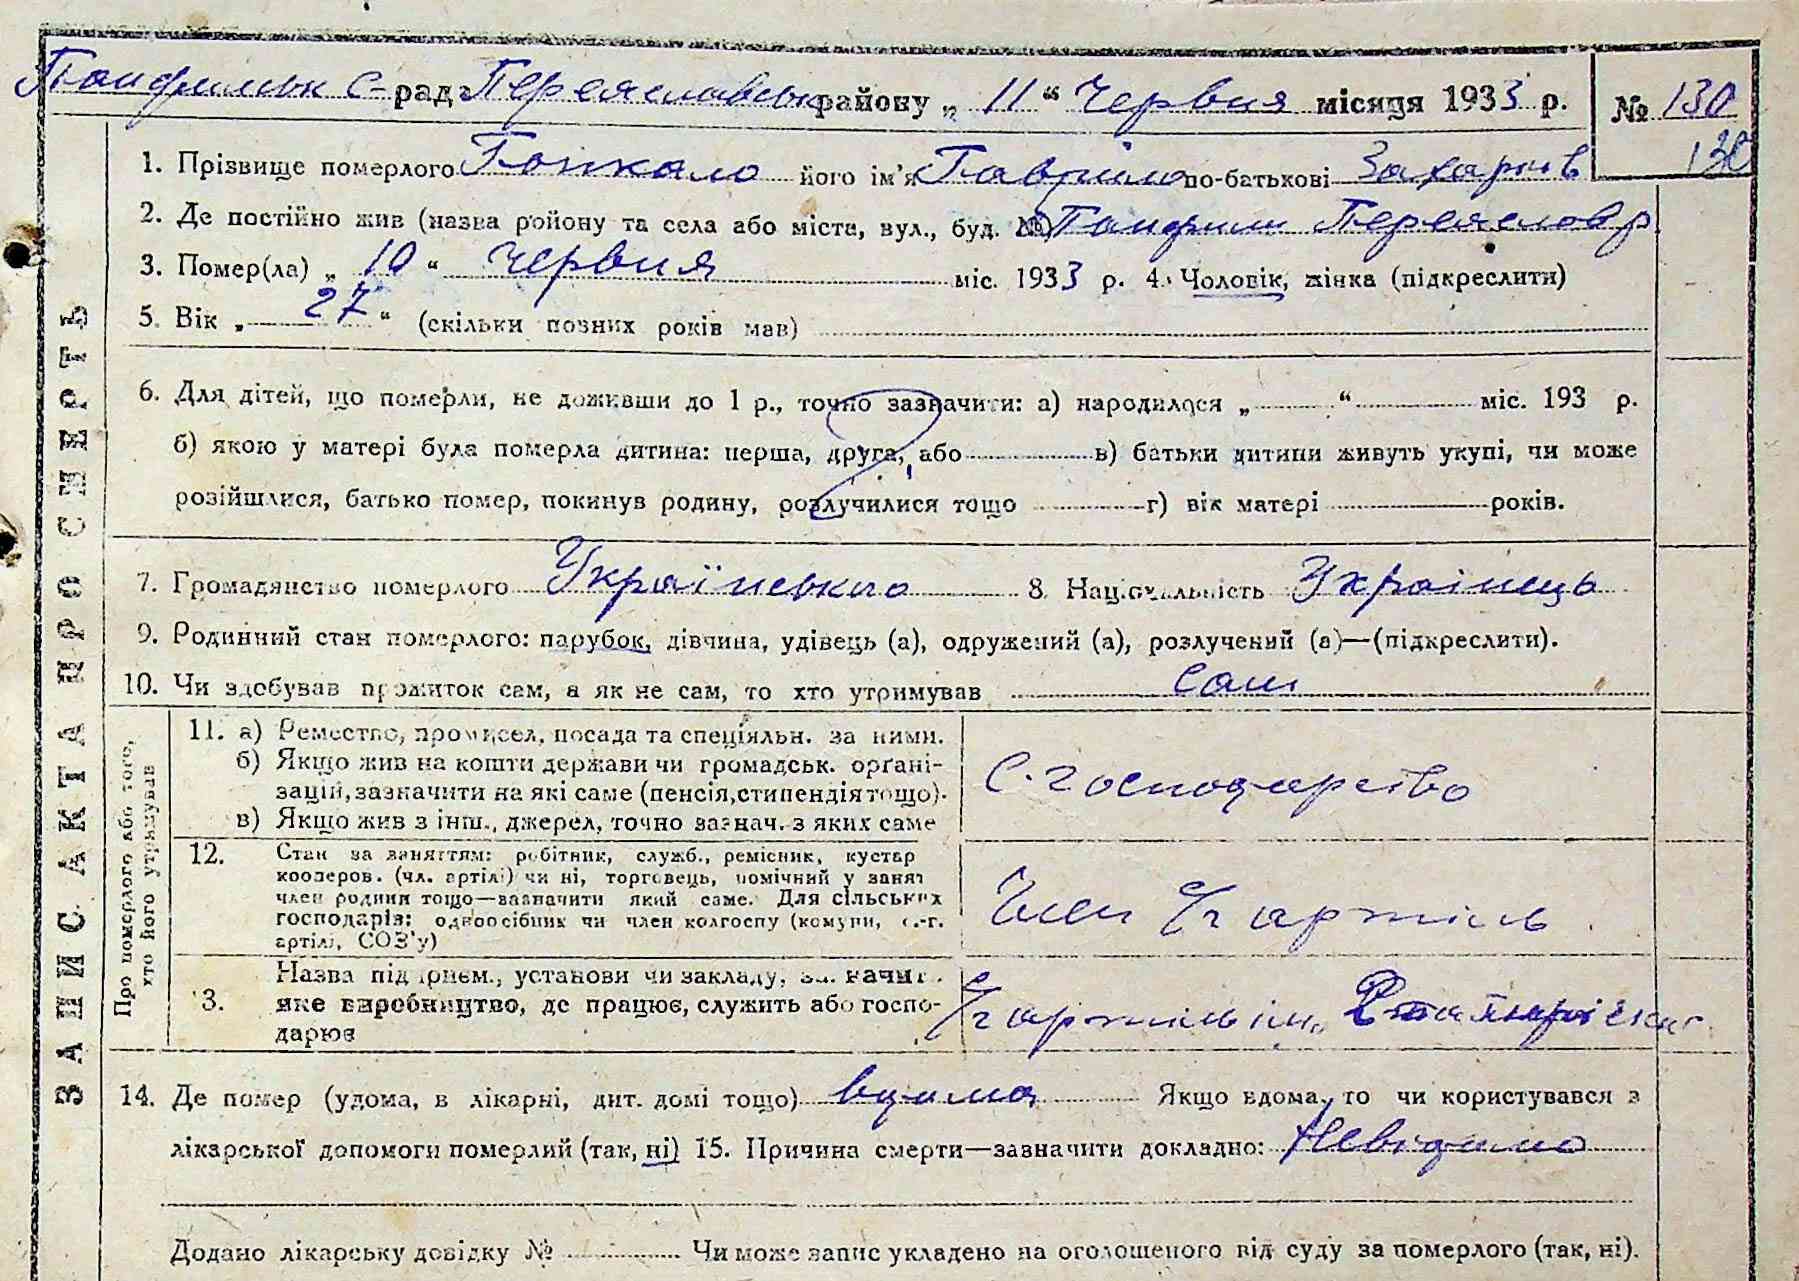 Панфильск с-рада Переяславськ району „ 11 “ Червня місяця 1933 р. № 130
130
1. Прізвище померлого Гопкало його ім'я Гавріло по-батькові Захарків
2. Де постійно жив (назва району та села або міста, вул., буд. №) Панфили Переяслов р
3. Помер(ла) „ 10 “ Червня міс. 1933 р. 4. Чоловік, жінка (підкреслити)
5. Вік „ 27 “ (скільки повних років мав)
6. Для дітей, що померли, не доживши до 1 р., точно зазначити: а) народилося „ “ міс. 193 р.
б) якою у матері була померла дитина: перша, друга, або в) батьки дитини живуть укупі, чи може
розійшлися, батько помер, покинув родину, розлучилися тощо г) вік матері років.
7. Громадянство померлого Українського 8. Національність Українець
9. Родинний стан померлого: парубок, дівчина, удівець (а), одружений (а), розлучений (а)—(підкреслити).
10. Чи здобував прожиток сам, а як не сам, то хто утримував сам
ЗАПИС АКТА ПРО СМЕРТЬ
Про померлого або того,
хто його утримував
11. а) Ремество, промисел, посада та спеціяльн. за ними.
б) Якщо жив на кошти держави чи громадськ. орґані-
зацій, зазначити на які саме (пенсія, стипендія тощо).
в) Якщо жив з інш., джерел, точно зазнач. з яких саме
С-господарство
12. Стан за заняттям: робітник, служб., ремісник, кустар
кооперов. (чл. артілі) чи ні, торговець, помічний у занят
член родини тощо—зазначити який саме. Для сільських
господарів: одноосібник чи член колгоспу (комуни, с.-г.
артілі, СОЗ'у)
Член С/г артіль
13. Назва підприєм., установи чи закладу, зазначит.
яке виробництво, де працює, служить або госпо-
дарює
С/г артіль ім.
14. Де помер (удома, в лікарні, дит. домі тощо) вдома Якщо вдома, то чи користувався з
лікарської допомоги померлий (так, ні) 15. Причина смерти—зазначити докладно: Невідомо
Додано лікарську довідку № Чи може запис укладено на оголошеного від суду за померлого (так, ні).